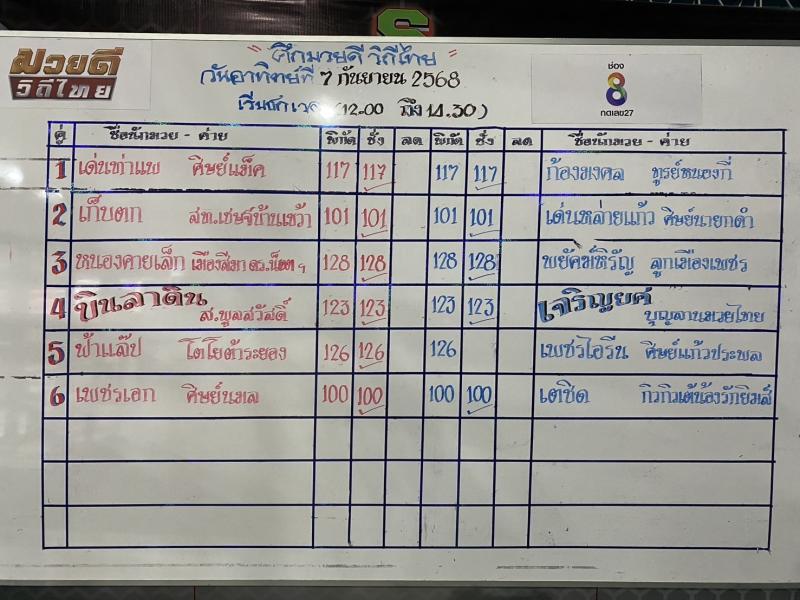 S
มวยดี
วิถีไทย
" ศึกมวยดี วิถีไทย "
วันอาทิตย์ที่ 7 กันยายน 2568
(12.00 ถึง 14.30)
ช่อง
8
กดเลข27
คู่ ชื่อนักมวย - ค่าย พิกัด ชั่ง ลด พิกัด ชั่ง ลด ชื่อนักมวย - ค่าย
1 เด่นท่าแพ ศิษย์แม็ค 117 117 117 117 ก้องมงคล ทูรย์หนองกี่
2 เก็บตก สท.เชษฐ์บ้านเขว้า 101 101 101 101 เด่นหล่ายแก้ว ศิษย์นายกดำ
3 หนองคายเล็ก เมืองสีมา 128 128 128 128 พยัคฆ์หิรัญ ลูกเมืองเพชร
4 บินลาดิน ส.พูลสวัสดิ์ 123 123 123 123 เจริญยศ บุญลานมวยไทย
5 ฟ้าแล๊ป โตโยต้าระยอง 126 126 126 เพชรไอรีน ศิษย์แก้วประพล
6 เพชรเอก ศิษย์นมล 100 100 100 100 เตชิด กิวกิวเต้น้องรักยิมส์